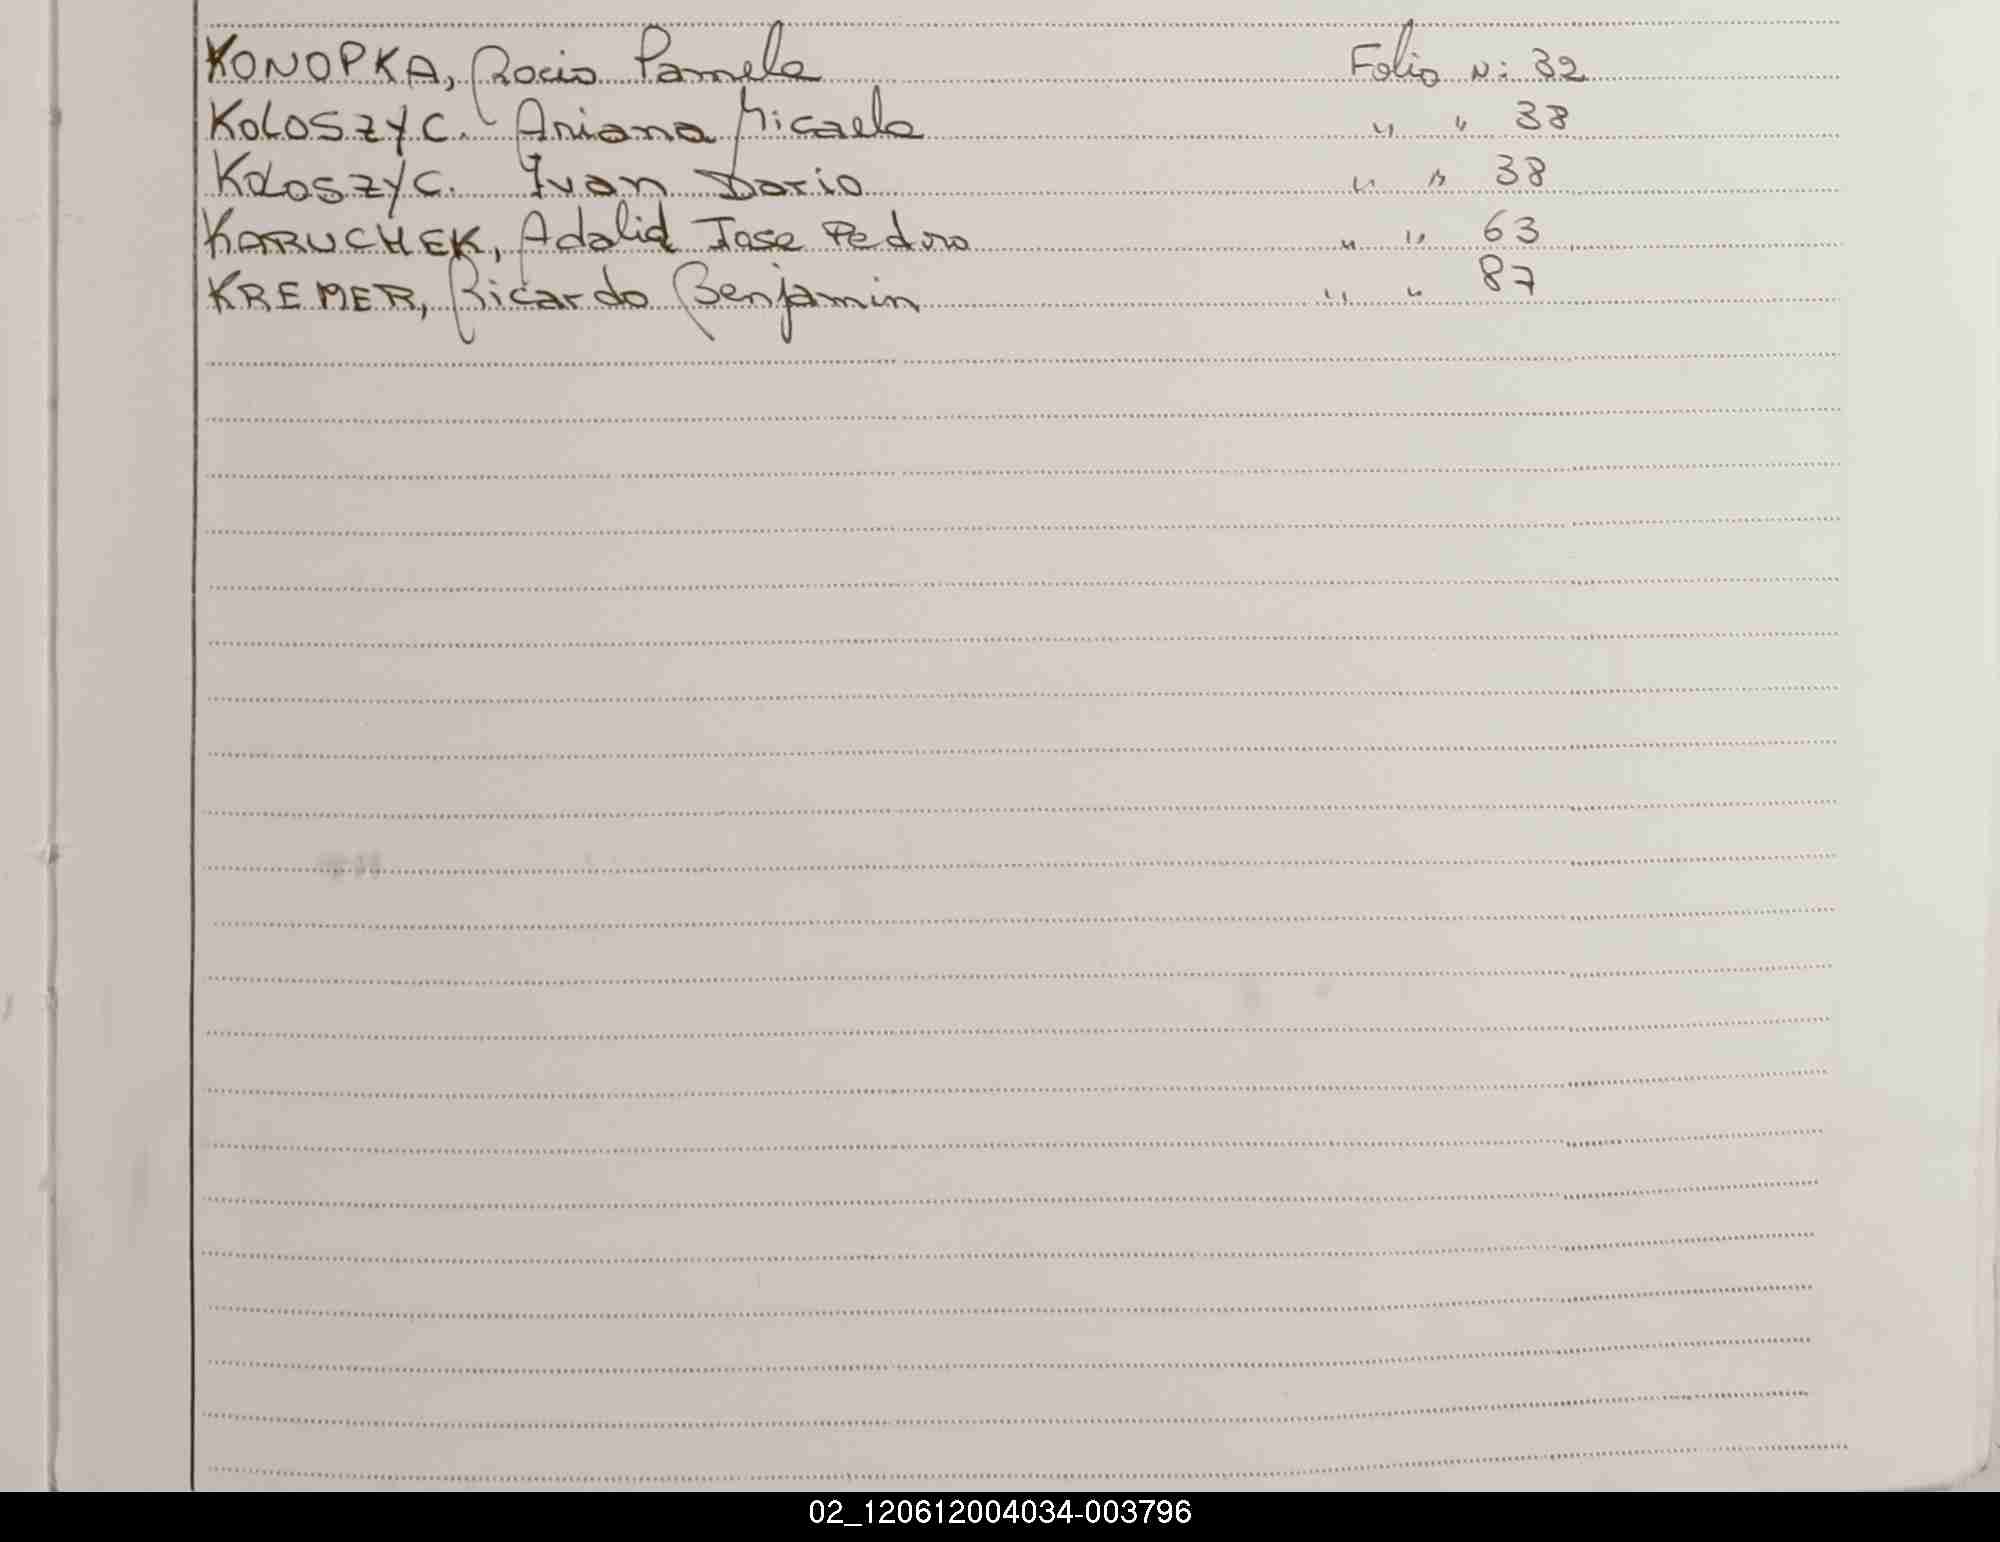 KONOPKA, Rocio Pamela Folio N: 32
KOLOSZYC. Ariana Micaela " " 38
KOLOSZYC. Ivan Dario " " 38
KARUCHEK, Adalid Jose Pedro " " 63
KREMER, Ricardo Benjamin " " 87
02_120612004034-003796